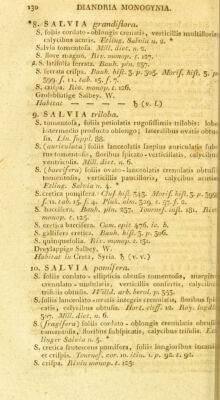 130 DIANDRIA MONOGYNIA.
*8. SALVIA grandiflora.
S. foliis cordato-oblongis crenatis, verticillis multifloris,
calycibus acutis. Etling. Salvia n. 2. *
Salvia tomentosa. Mill. dict. n. 2.
S. flore magno. Riv. monop. t. 127.
S. latifolia serrata. Bauh. pin. 237.
S. serrata crispa. Bauh. hist. 3. p. 305. Moris. hist. 3. p.
399. f. 11. tab. 15. f. 7.
S. crispa. Riv. monop. t. 126.
Grosblütige Salbey. W.
Habitat — — — — ♄ (v. f.)
9. SALVIA triloba.
S. tomentosa, foliis petiolatis rugosissimis trilobis: lobo
intermedio producto oblongo; lateralibus ovatis obtu-
sis. Lin. suppl. 88.
S. (auriculata) foliis lanceolatis saepius auriculatis sub-
tus tomentosis, floribus spicato-verticillatis, calycibus
ventricosis. Mill. dict. n. 6.
S. (baccifera) foliis ovato-lanceolatis crenulatis obtusis
tomentosis, verticillis paucifloris, calycibus acutis
Etling. Salvia n. 4. *
S. cretica pomifera. Clus. hist. 343. Moris. hist. 3. p. 399.
S. baccifera. Bauh. pin. 237. Tournef. inst. 181. Riv.
monop. t. 125.
S. cretica baccifera. Cam. epit. 476. ic. b.
S. gallifera cretica. Bauh. hist. 3. p. 306.
S. quinquefolia. Riv. monop. t. 131.
Dreylappige Salbey. W.
Habitat in Creta, Syria. ♄ (v. v.)
10. SALVIA pomifera.
S. foliis cordato-ellipticis obtusis tomentosis, margine
crenulato-undulatis, verticillis confertis, calycibus
trifidis obtusis. Willd. arb. berol. p. 353.
S. foliis lanceolato-ovatis integris crenulatis, floribus spi-
catis, calycibus obtusis. Hort. cliff. 12. Roy. lugdb.
307. Mill. dict. n. 6.
S. (fragifera) foliis cordato-oblongis crenulatis obtusis
tomentosis, floribus subspicatis, calycibus trifidis. Et-
linger Salvia n. 5. *
S. cretica frutescens pomifera, foliis longioribus incanis
et crispis. Tournef. cor. 10. itin. 1. p. 92. t. 92.
S. crispa. Rivin monop. t. 128.